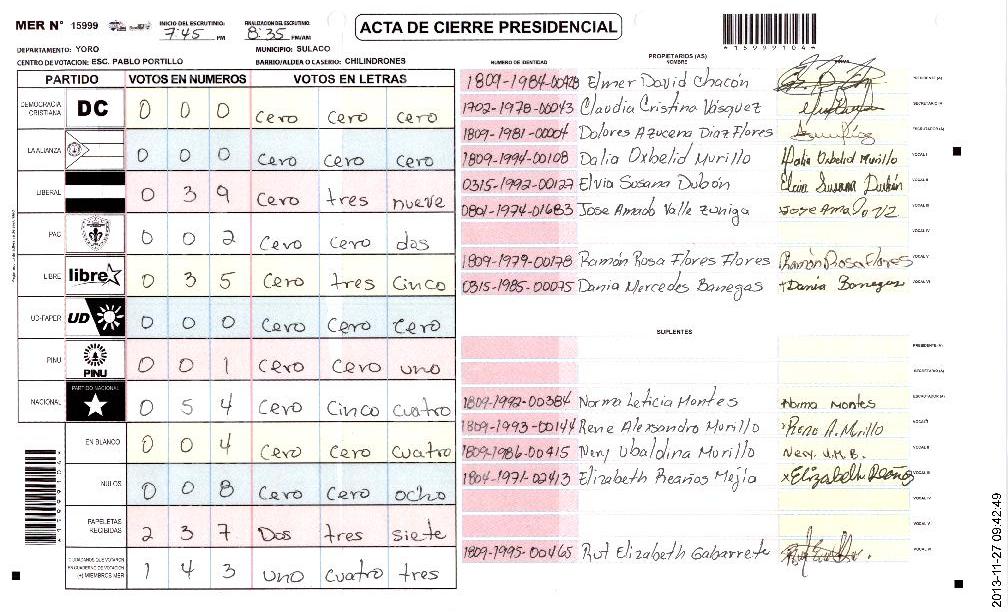 MER N° 15999 INICIO DEL ESCRUTINIO: 7:45 PM FINALIZACION DEL ESCRUTINIO: 8:35 PM/AM
ACTA DE CIERRE PRESIDENCIAL
*15999104*
DEPARTAMENTO: YORO MUNICIPIO: SULACO
CENTRO DE VOTACION: ESC. PABLO PORTILLO BARRIO/ALDEA O CASERIO: CHILINDRONES
PARTIDO VOTOS EN NUMEROS VOTOS EN LETRAS
DEMOCRACIA CRISTIANA DC 0 0 0 Cero Cero Cero
LA ALIANZA 0 0 0 Cero Cero Cero
LIBERAL 0 3 9 Cero tres nueve
PAC 0 0 2 Cero Cero dos
LIBRE libre 0 3 5 Cero tres Cinco
UD-FAPER UD 0 0 0 Cero Cero Cero
PINU PINU 0 0 1 Cero Cero uno
NACIONAL PARTIDO NACIONAL 0 5 4 Cero Cinco cuatro
EN BLANCO 0 0 4 Cero Cero cuatro
NULOS 0 0 8 Cero Cero ocho
PAPELETAS RECIBIDAS 2 3 7 Dos tres siete
CIUDADANOS QUE VOTARON EN CUADERNO DE VOTACION (+) MIEMBROS MER 1 4 3 uno cuatro tres
PROPIETARIOS (AS)
NUMERO DE IDENTIDAD NOMBRE
1809-1984-00428 Elmer David Chacón PRESIDENTE (A)
1702-1978-00043 Claudia Cristina Vásquez SECRETARIO (A)
1809-1981-00004 Dolores Azucena Diaz Flores ESCRUTADOR (A)
1809-1994-00108 Dalia Oxbelid Murillo Dalia Oxbelid Murillo VOCAL I
0315-1992-00127 Elvia Susana Dubón Elvia Susana Dubón VOCAL II
0801-1974-01683 Jose Amado Valle Zuniga Jose Amado VZ VOCAL III
VOCAL IV
1809-1979-00178 Ramón Rosa Flores Flores Ramón Rosa Flores VOCAL V
0315-1985-00075 Dania Mercedes Banegas Dania Banegas VOCAL VI
SUPLENTES
PRESIDENTE (A)
SECRETARIO (A)
1809-1992-00384 Norma Leticia Montes Norma Montes ESCRUTADOR (A)
1809-1993-00144 Rene Alexsandro Murillo Rene A. Murillo VOCAL I
1809-1986-00415 Nery Ubaldina Murillo Nery. U.M.B. VOCAL II
1804-1971-02413 Elizabeth Reaños Mejia Elizabeth Reaños VOCAL III
VOCAL IV
VOCAL V
1809-1995-00465 Rut Elizabeth Gabarrete VOCAL VI
2013-11-27 09:42:49